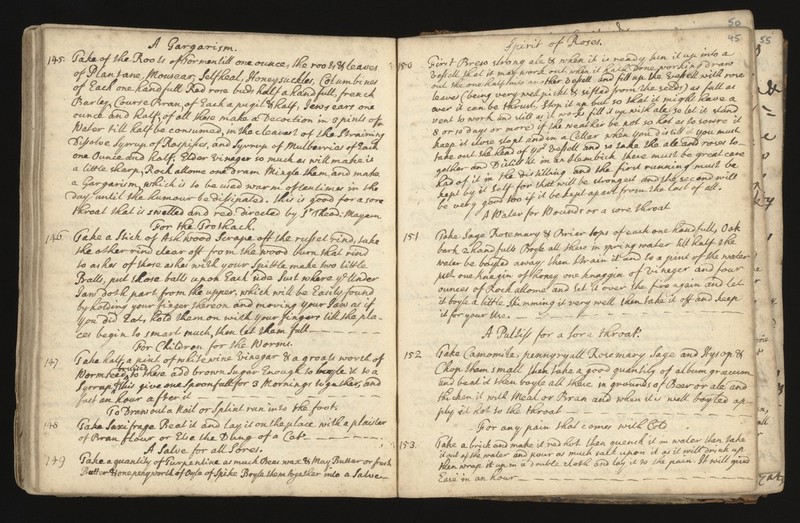 A Gargarism.
145. Take of the Roots of Tormentill one ounce, the roots & leaves
of Plantane, Mousear, Selfheal, Honeysuckles, Columbines
of Each one handfull Red rose buds half a handfull, french
Barley, Course Bran, of Each a pugil & half, Jews ears one
ounce and half, of all these make a Decoction in 3 pints of
Water till half be consumed, in the cleavest of the Straining
Disolve Syrup of Raspises, and Syrrup of Mulberries of Each
one Ounce and half; Elder vinegar so much as will make it
a little sharp, Rock allome one dram Mingle them and make
a Gargarism, which is to be used warm oftentimes in the
day until the humour be dissipated. this is good for a sore
throat that is swelled and red directed by Sr Theod: Mayern
For the Toothack.
146 Take a Stick of Ash wood Scrape off the russet rind, take
the other rind clear off from the wood burn that rind
to ashes of those ashes with your spittle make two little
Balls, put those balls upon Each side Just where ye Under
Jaw doth part from the upper, which will be Easily found
by holding your finger thereon and moving your Jaw as if
you did Eat, hold them on with your fingers till the pla-
ces begin to smart much, then let them fall
For Children for the Worms.
147 Take half a pint of white wine Vinegar & a groats worth of
Wormseed bruised to these add brown Sugar Enough to boyle it to a
Syrrup, this give one Spoonfull for 3 Mornings together, and
fast an hour after it
To Draw out a Nail or Splint run into the foot.
148 Take Saxifrage Beat it and lay it on the place with a plaister
of Bran flour or Else the Dung of a Cat.
A Salve for all Sores.
149 Take a quantity of Turpentine as much Bees wax & May Butter or fresh
Butter & one penyworth of Oyle of Spike Boyle them together into a Salve
50
45
55
Spirit of Roses.
150 First Brew strong ale & when it is ready tun it up into a
Vessell that it may work out when it hath done working draw
out the one half into another Vessell and fill up the Vessell with rose
leaves (being very well pickt & sifted from the seeds) as full as
ever it can be thrust. Stop it up but so that it might have a
vent to work and still as it works fill it up with ale, so let it stand
8 or 10 days or more if the weather be not so hot as to sowre it
keep it close stopt and in a Cellar when you distill it you must
take out the head of ye Vessell and so take the ale and roses to-
gether and Distill it in an Alimbick there must be great care
had of it in the Distilling and the first running must be
kept by it self for that will be strongest and the second will
be very good too if it be kept apart from the last of all.
A Water for Wounds or a sore throat
151 Take Sage Rosemary & Brier tops of each one handfull, Oak
bark 2 handfulls Boyle all these in spring water till half the
Water be boyled away then strain it and to a pint of the water
put one knagin of Honey one knaggin of Vinegar and four
ounces of Rock allome and set it over the fire again and let
it boyle a little Skimming it very well then take it off and keep
it for your Use.
A Pultiss for a Sore throat.
152 Take Camomile, pennyryall Rosemary Sage and Hysop &
Chop them small then take a good quantity of album graecum
and beat it then boyle all these in grounds of Beer or ale and
thicken it with Meal or Bran and when it is well boyled ap-
ply it hot to the throat
For any pain that comes with Cold
153 Take a brick and make it red hot then quench it in water then take
it out of the water and pour as much sack upon it as it will drink up
then wrap it up in a double cloth and lay it to the pain. It will give
Ease in an hour